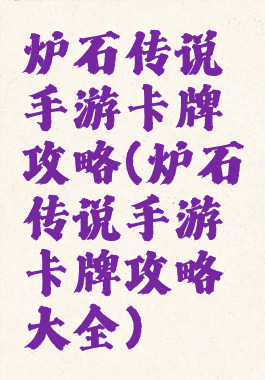 炉石传说
手游卡牌
攻略(炉石
传说手游
卡牌攻略
大全)